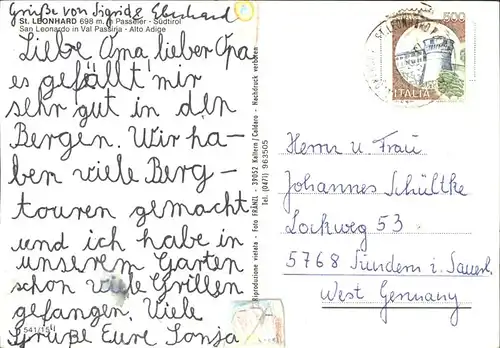 Grüße von Sigrid & Eberhard
ST. LEONHARD 698 m. in Passeier - Südtirol
San Leonardo in Val Passiria - Alto Adige
Liebe Oma, lieber Opa,
es gefällt mir
sehr gut in den
Bergen. Wir ha-
ben viele Berg-
touren gemacht
und ich habe in
unserem Garten
schon viele Grillen
gefangen. Viele
Grüße Eure Sonja
541/15
Riproduzione vietata - Foto FRÄNZL - 39052 Kaltern / Caldaro - Nachdruck verboten
Tel. (0471) 963505
ST. LEONHARD
500
ITALIA
Herrn u. Frau
Johannes Schültke
Lockweg 53
5768 Sundern i. Sauerl.
West Germany